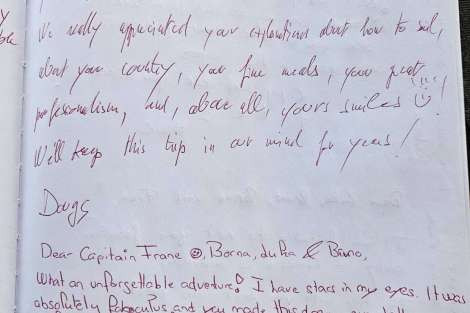 We really appreciated your explanations about how to sail,
about your country, your fine meals, your great
professionalism, and, above all, yours smiles ☺!
We'll keep this trip in our mind for years!
Dougs
Dear Capitain Frane ☺, Borna, duka & Bruno,
What an unforgettable adventure! I have stars in my eyes. It was
absolutely and you made this